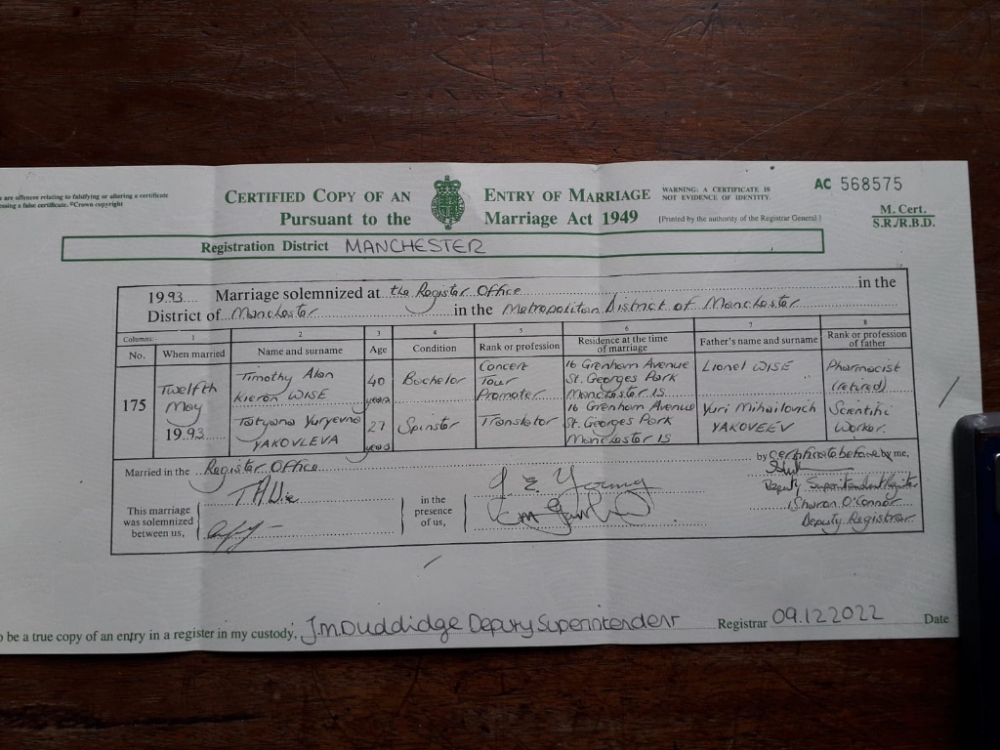 are offences relating to falsifying or altering a certificate
a false certificate. ©Crown copyright
CERTIFIED COPY OF AN ENTRY OF MARRIAGE
Pursuant to the Marriage Act 1949
WARNING: A CERTIFICATE IS
NOT EVIDENCE OF IDENTITY.
[Printed by the authority of the Registrar General]
AC 568575
M. Cert.
S.R./R.B.D.
Registration District MANCHESTER
1993 Marriage solemnized at the Register Office in the
District of Manchester in the Metropolitan District of Manchester
Columns: 1 2 3 4 5 6 7 8
No. When married Name and surname Age Condition Rank or profession Residence at the time of marriage Father's name and surname Rank or profession of father
175 Twelfth May 1993
Timothy Alan Kieron WISE 40 years Bachelor Concert Tour Promoter 16 Grenham Avenue St. Georges Park Manchester 15 Lionel WISE Pharmacist (retired)
Tatyana Yuryevna YAKOVLEVA 27 years Spinster Translator 16 Grenham Avenue St. Georges Park Manchester 15 Yuri Mihailovich YAKOVEEV Scientific Worker.
Married in the Register Office by Certificate before by me,
This marriage was solemnized between us,
in the presence of us,
J E Young
Deputy Superintendent Registrar
Sharon O'Connor
Deputy Registrar
to be a true copy of an entry in a register in my custody, J.M.Duddidge Deputy Superintendent Registrar 09.12.2022 Date